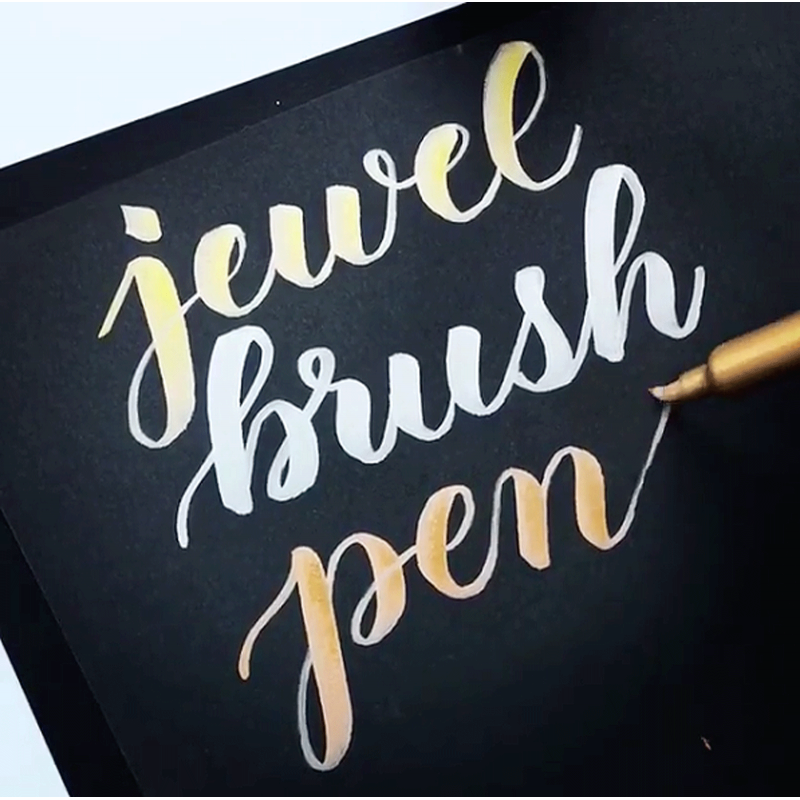 jewel
brush
pen